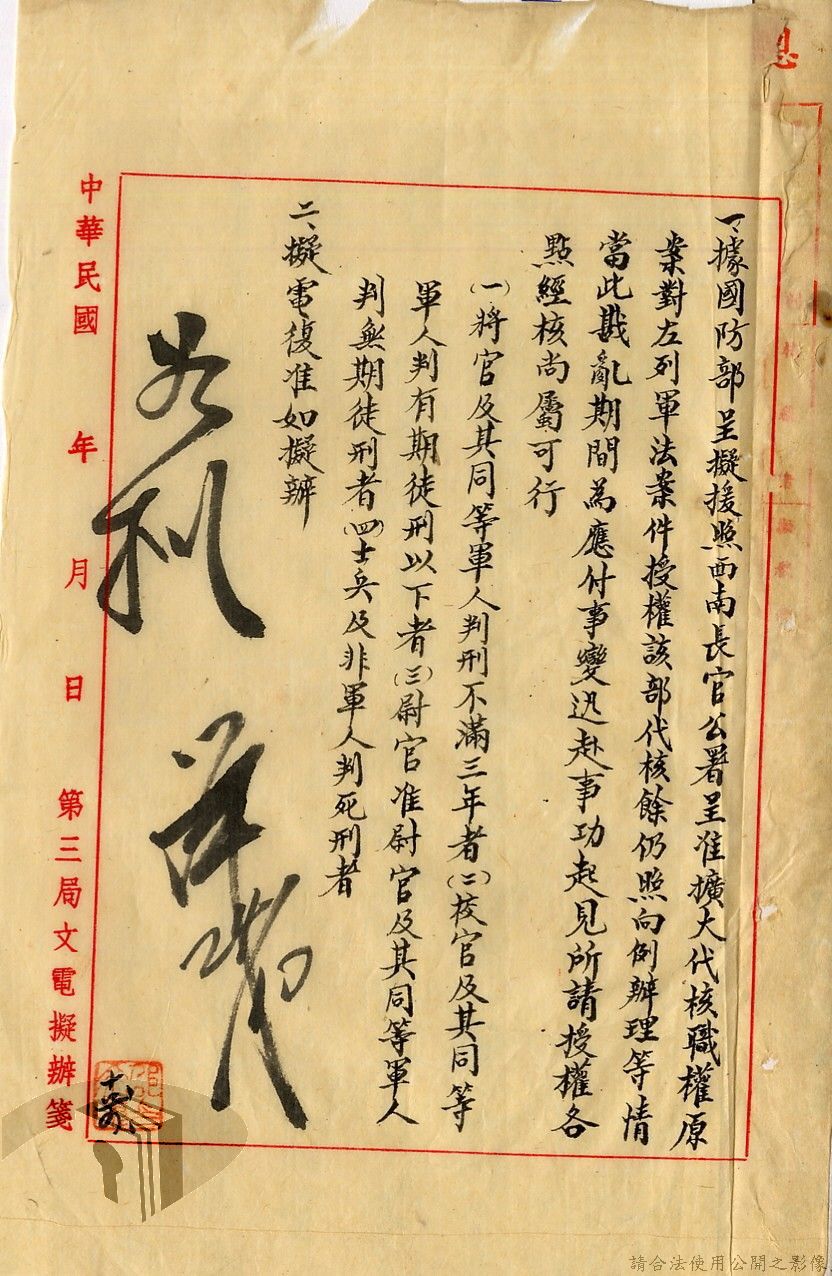 一、據國防部呈擬援照西南長官公署呈准擴大代核職權原
案對左列軍法案件授權該部代核餘仍照向例辦理等情
當此戡亂期間為應付事變迅赴事功起見所請授權各
點經核尚屬可行
㈠將官及其同等軍人判刑不滿三年者㈡校官及其同等
軍人判有期徒刑以下者㈢尉官准尉官及其同等軍人
判無期徒刑者㈣士兵及非軍人判死刑者
二、擬電復准如擬辦
中華民國 年 月 日 第三局文電擬辦箋
請合法使用公開之影像